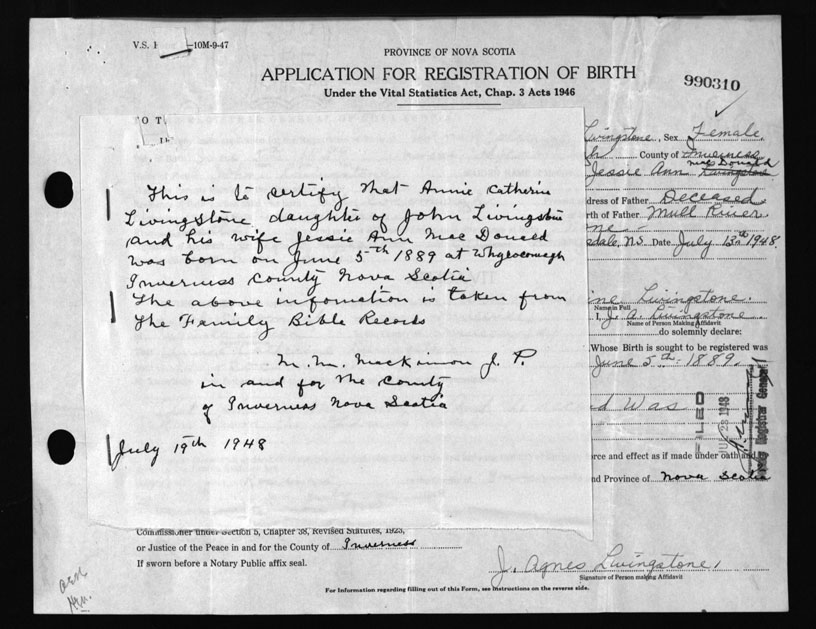 V.S. 1 -10M-9-47
PROVINCE OF NOVA SCOTIA
APPLICATION FOR REGISTRATION OF BIRTH
Under the Vital Statistics Act, Chap. 3 Acts 1946
990310
O T
This is to certify that Annie Catherine
Livingstone daughter of John Livingstone
and his wife Jessie Ann MacDonald
was born on June 5th 1889 at Whycocomagh
Inverness County Nova Scotia
The above infomation is taken from
the Family Bible Records
M. M. MacKinnon J. P.
in and for the County
of Inverness Nova Scotia
July 19th 1948
Livingstone, Sex Female
County of Inverness
MacDonald
Jessie Ann Livingstone
dress of Father Deceased
rth of Father Mull River
one
sdale, N.S. Date July 13th 1948.
ine Livingstone.
Name in Full
I, J. A. Livingstone
Name of Person Making Affidavit
do solemnly declare:
Whose Birth is sought to be registered was
June 5th 1889.
d Was
FILED
JUL 28 1948
Registrar General
rce and effect as if made under oath and
nd Province of Nova Scotia
Commissioner under Section 5, Chapter 38, Revised Statutes, 1923,
or Justice of the Peace in and for the County of Inverness
If sworn before a Notary Public affix seal.
J. Agnes Livingstone,
Signature of Person making Affidavit
For Information regarding filling out of this Form, see instructions on the reverse side.